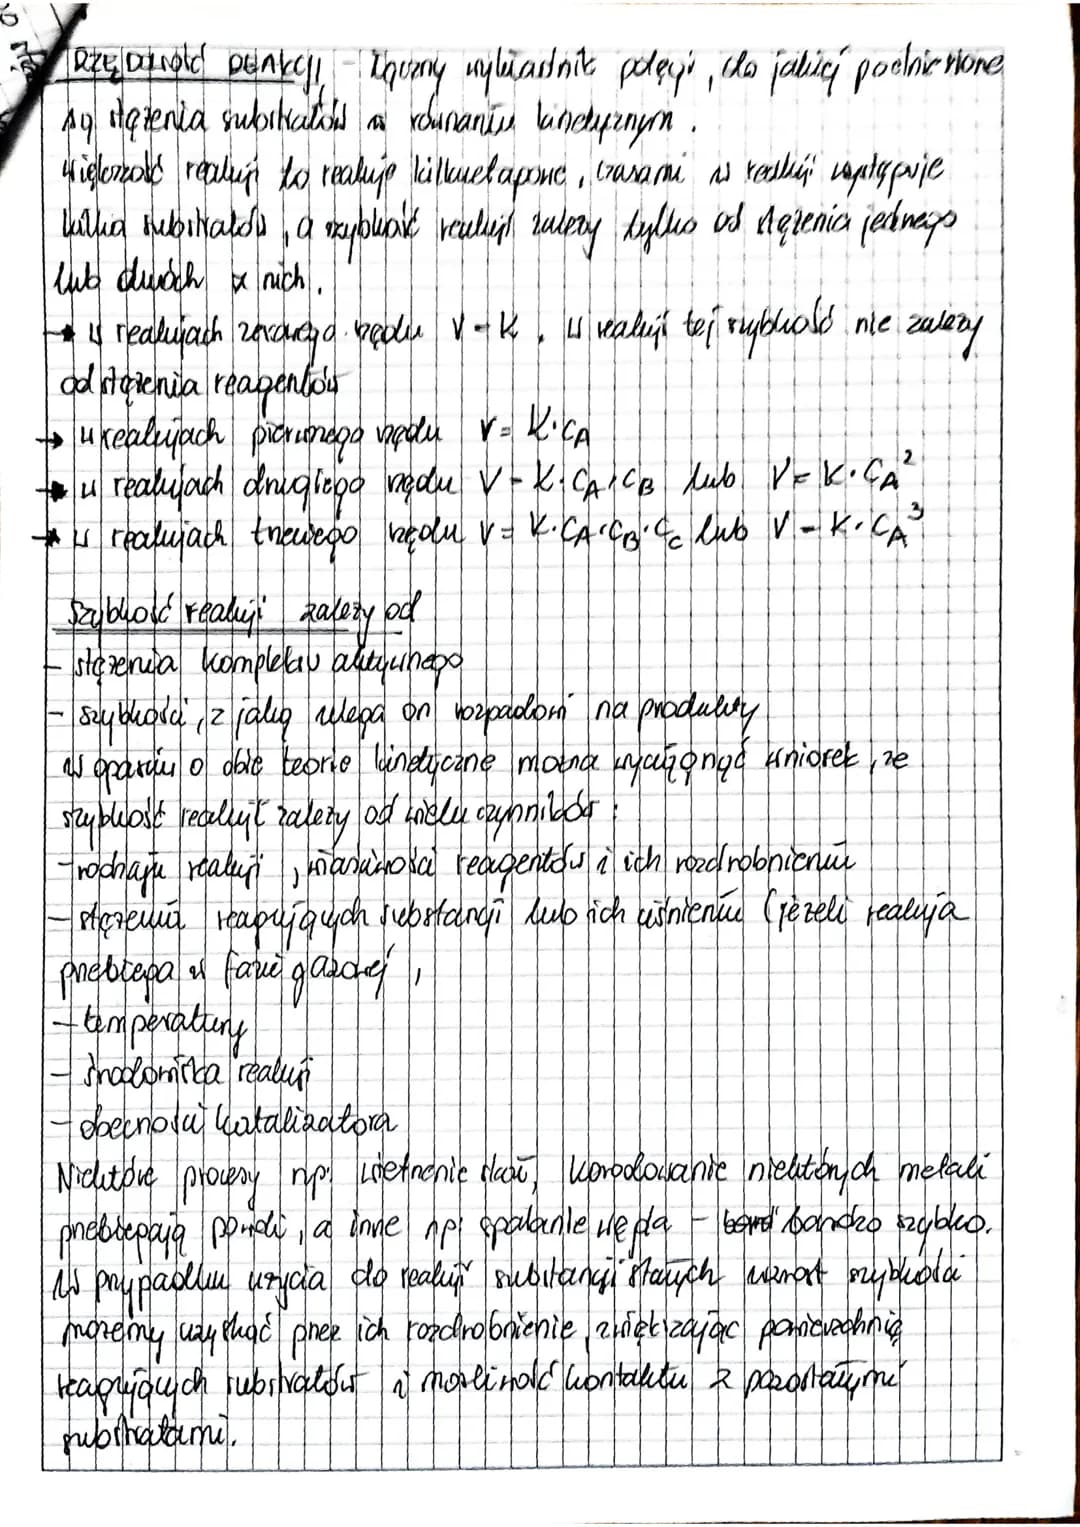 RZĘDOWOŚĆ REAKCJI - Łączny wykładnik potęgi, do jakiej podniesione
są stężenia substratów w równaniu kinetycznym.
Większość reakcji to reakcje kilkuetapowe, czasami w reakcji występuje
kilka substratów, a szybkość reakcji zależy tylko od stężenia jednego
lub dwóch z nich.
→ w reakcjach zerowego rzędu V=K. W reakcji tej szybkość nie zależy
od stężenia reagentów
→ w reakcjach pierwszego rzędu V= K·CA
→ w reakcjach drugiego rzędu V=K·CA·CB lub V=K·CA²
→ w reakcjach trzeciego rzędu V=K·CA·CB·Cc lub V=K·CA³
Szybkość reakcji zależy od
- stężenia kompleksu aktywnego
- szybkości, z jaką ulega on rozpadowi na produkty
w oparciu o obie teorie kinetyczne można wyciągnąć wniosek, że
szybkość reakcji zależy od wielu czynników:
- rodzaju reakcji, właściwości reagentów i ich rozdrobnieniu
- stężenia reagujących substancji lub ich ciśnieniu (jeżeli reakcja
przebiega w fazie gazowej,
- temperatury
- środowiska reakcji
- obecności katalizatora
Niektóre procesy np. wietrzenie skał, korodowanie niektórych metali
przebiegają powoli, a inne np. spalanie węgla - bardzo szybko.
W przypadku użycia do reakcji substancji stałych wzrost szybkości
możemy uzyskać przez ich rozdrobnienie, zwiększając powierzchnię
reagujących substratów i możliwość kontaktu z pozostałymi
substratami.